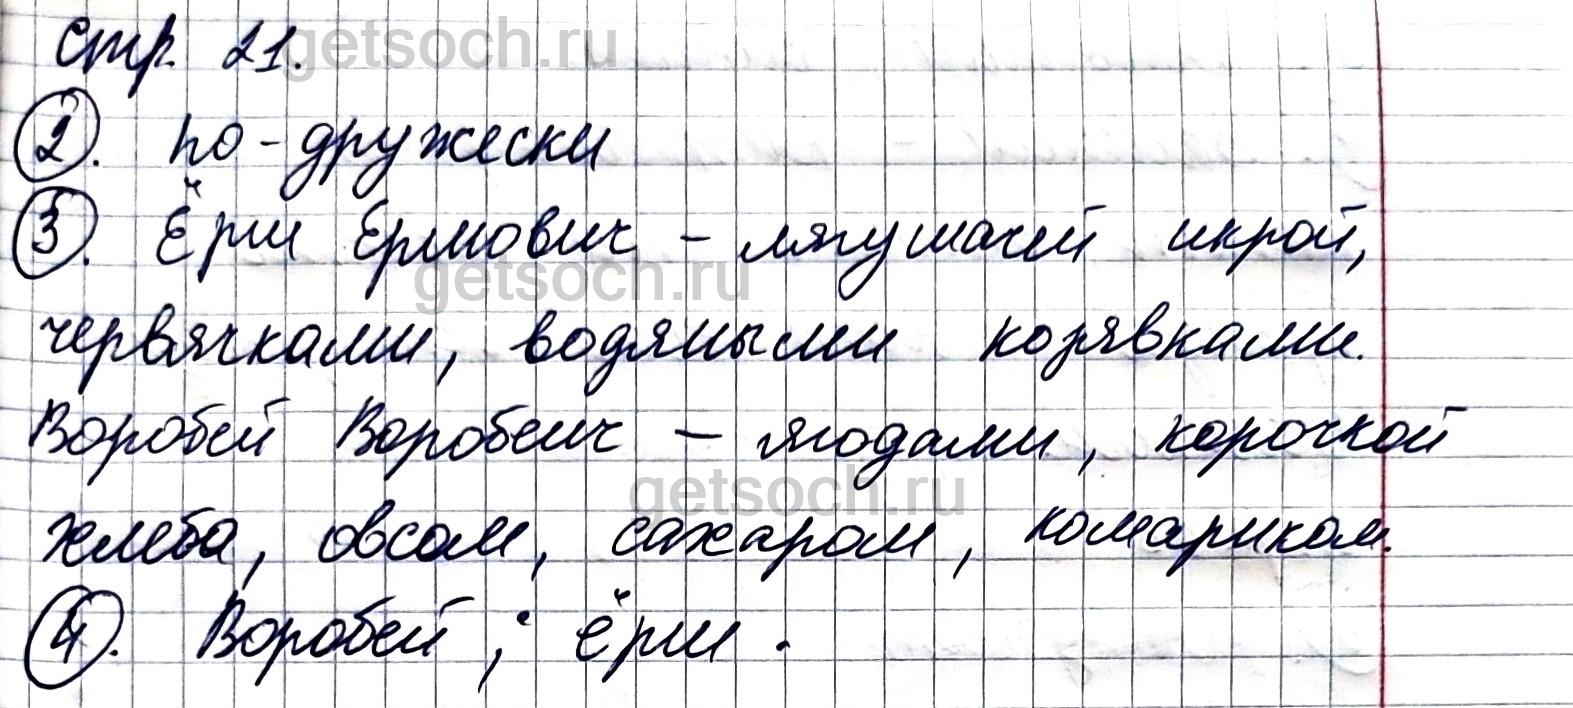 стр. 21.
getsoch.ru
2. по-дружески
3. Ёрш Ершович - лягушачей икрой,
getsoch.ru
червячками, водяными козявками.
Воробей Воробеич - ягодами, корочкой
getsoch.ru
хлеба, овсом, сахаром, комариком.
4. Воробей; ёрш.